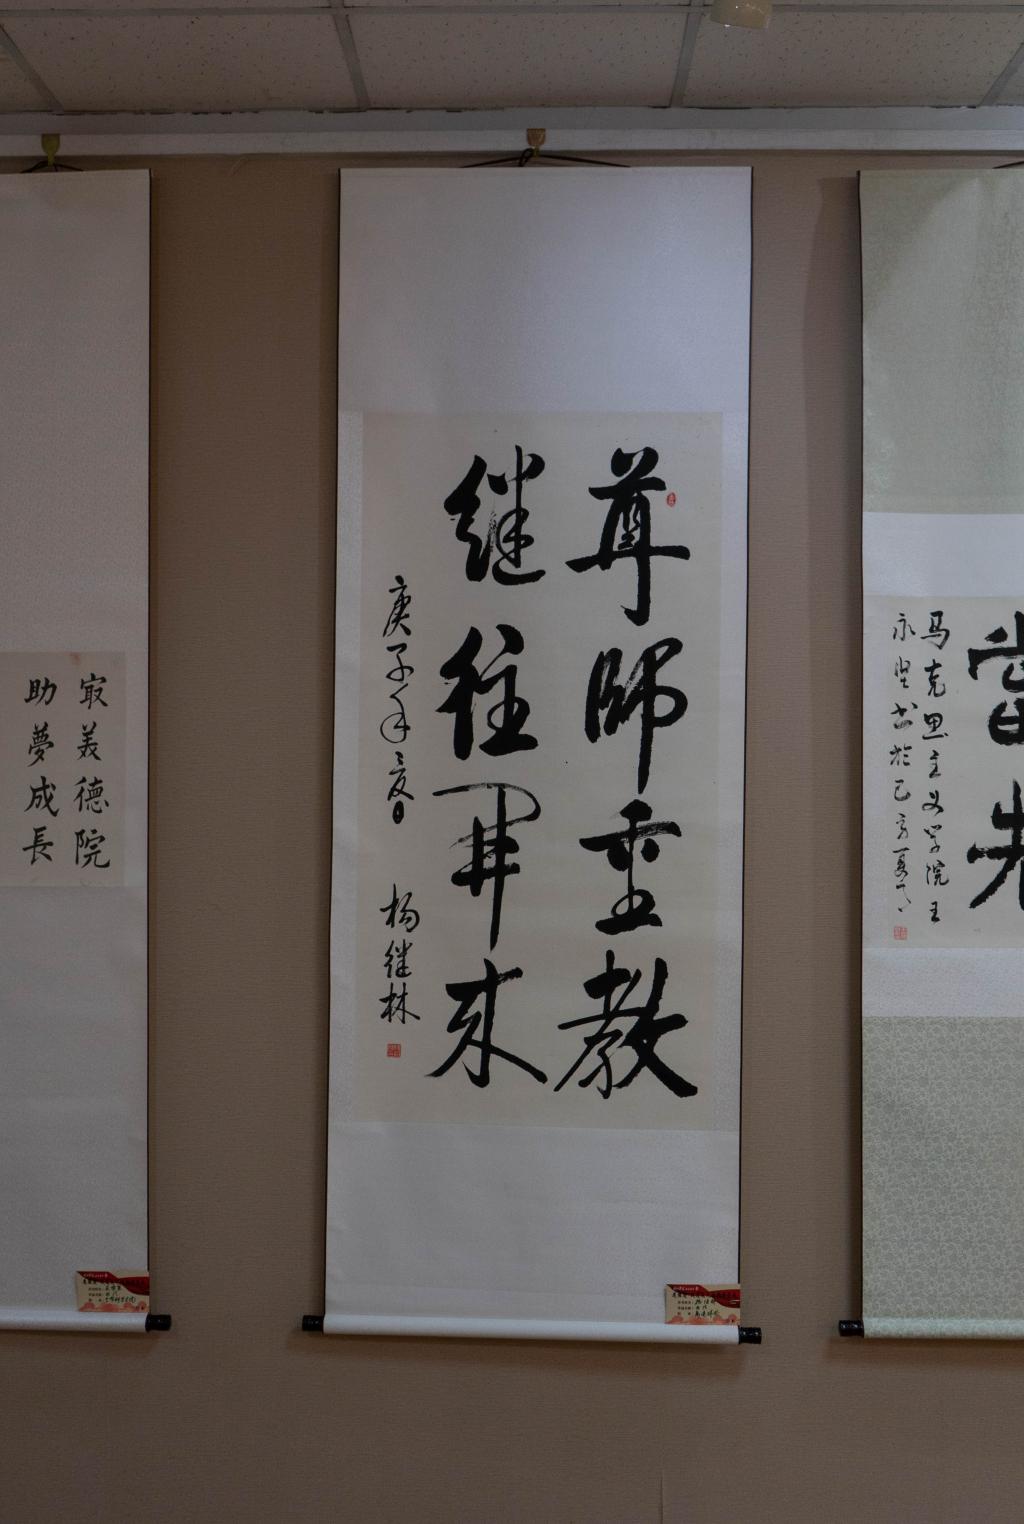 尊師重教
继往开来
庚子年夏日
杨继林
最美德院
助夢成長
當先
马克思主义学院王
永坚书於己亥夏月